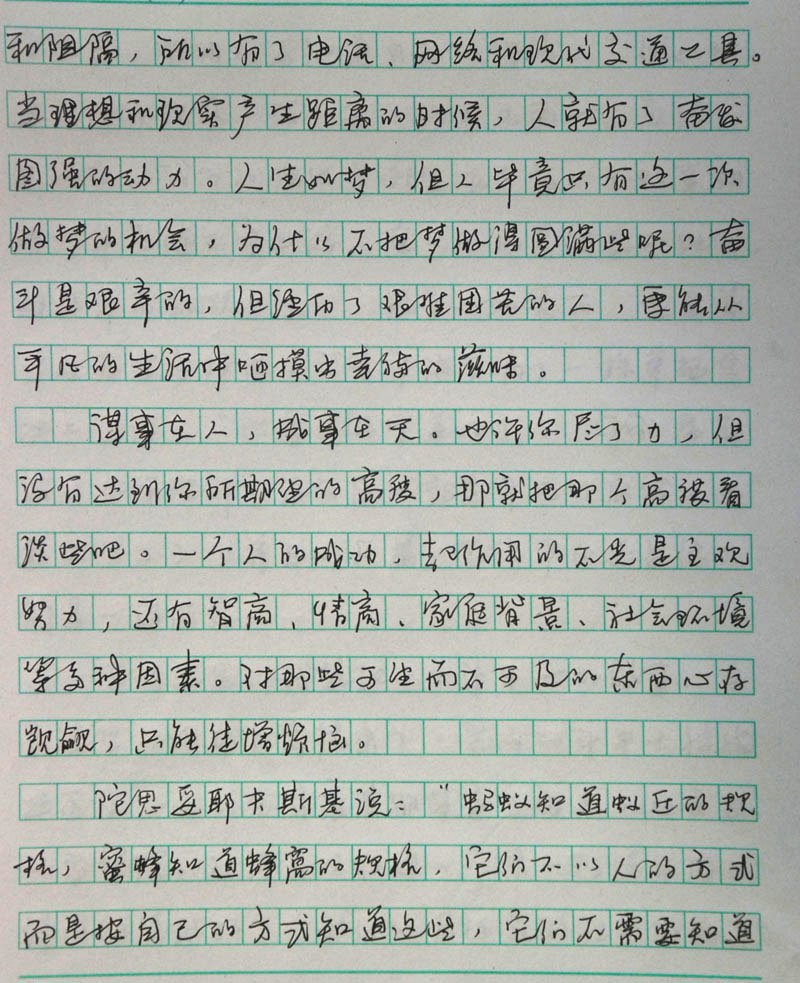 和阻隔，所以有了电话、网络和现代交通工具。
当理想和现实产生距离的时候，人就有了奋发
图强的动力。人生如梦，但人毕竟只有这一次
做梦的机会，为什么不把梦做得圆满些呢？奋
斗是艰辛的，但经历了艰难困苦的人，更能从
平凡的生活中咂摸出幸福的滋味。
谋事在人，成事在天。也许你尽了力，但
没有达到你所期望的高度，那就把那个高度看
淡些吧。一个人的成功，起作用的不光是主观
努力，还有智商、情商、家庭背景、社会环境
等多种因素。对那些可望而不可及的东西心存
觊觎，只能徒增烦恼。
陀思妥耶夫斯基说：“蚂蚁知道蚁丘的规
格，蜜蜂知道蜂窝的规格，它们不以人的方式
而是按自己的方式知道这些，它们不需要知道